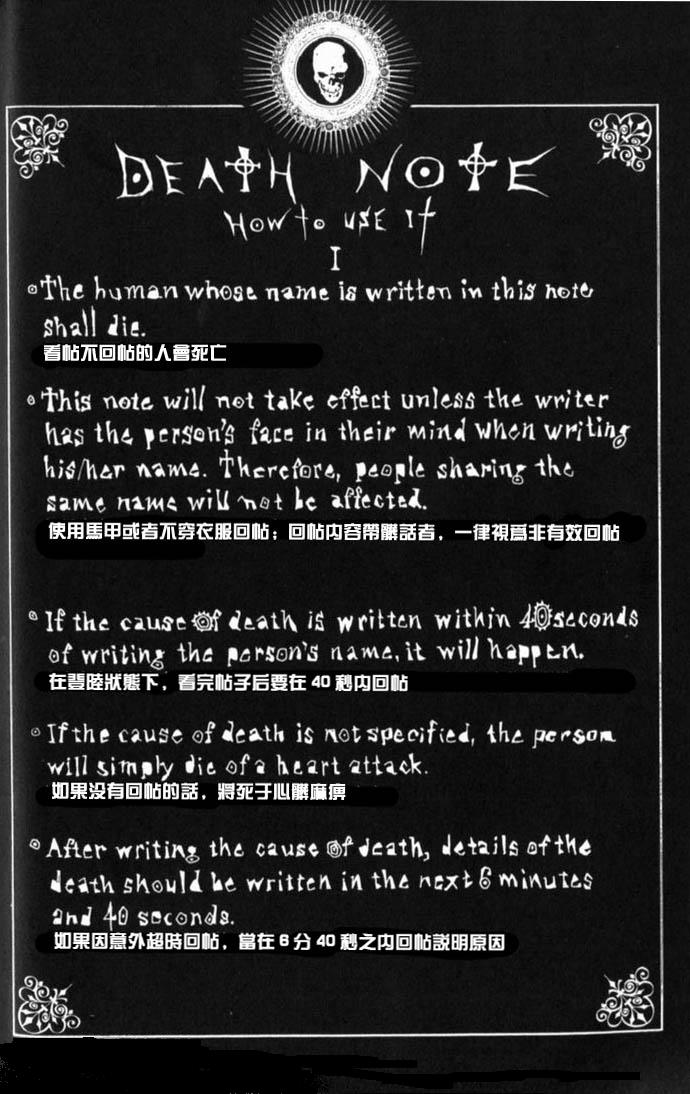 DEATH NOTE
HOW to USE It
I
The human whose name is written in this note
shall die.
看帖不回帖的人會死亡
This note will not take effect unless the writer
has the person's face in their mind when writing
his/her name. Therefore, people sharing the
same name will not be affected.
使用馬甲或者不穿衣服回帖；回帖内容帶髒話者，一律視爲非有效回帖
If the cause of death is written within 40 seconds
of writing the person's name, it will happen.
在登陸狀態下，看完帖子后要在 40 秒内回帖
If the cause of death is not specified, the person
will simply die of a heart attack.
如果没有回帖的話，將死于心髒麻痹
After writing the cause of death, details of the
death should be written in the next 6 minutes
and 40 seconds.
如果因意外超時回帖，當在 6 分 40 秒之内回帖説明原因